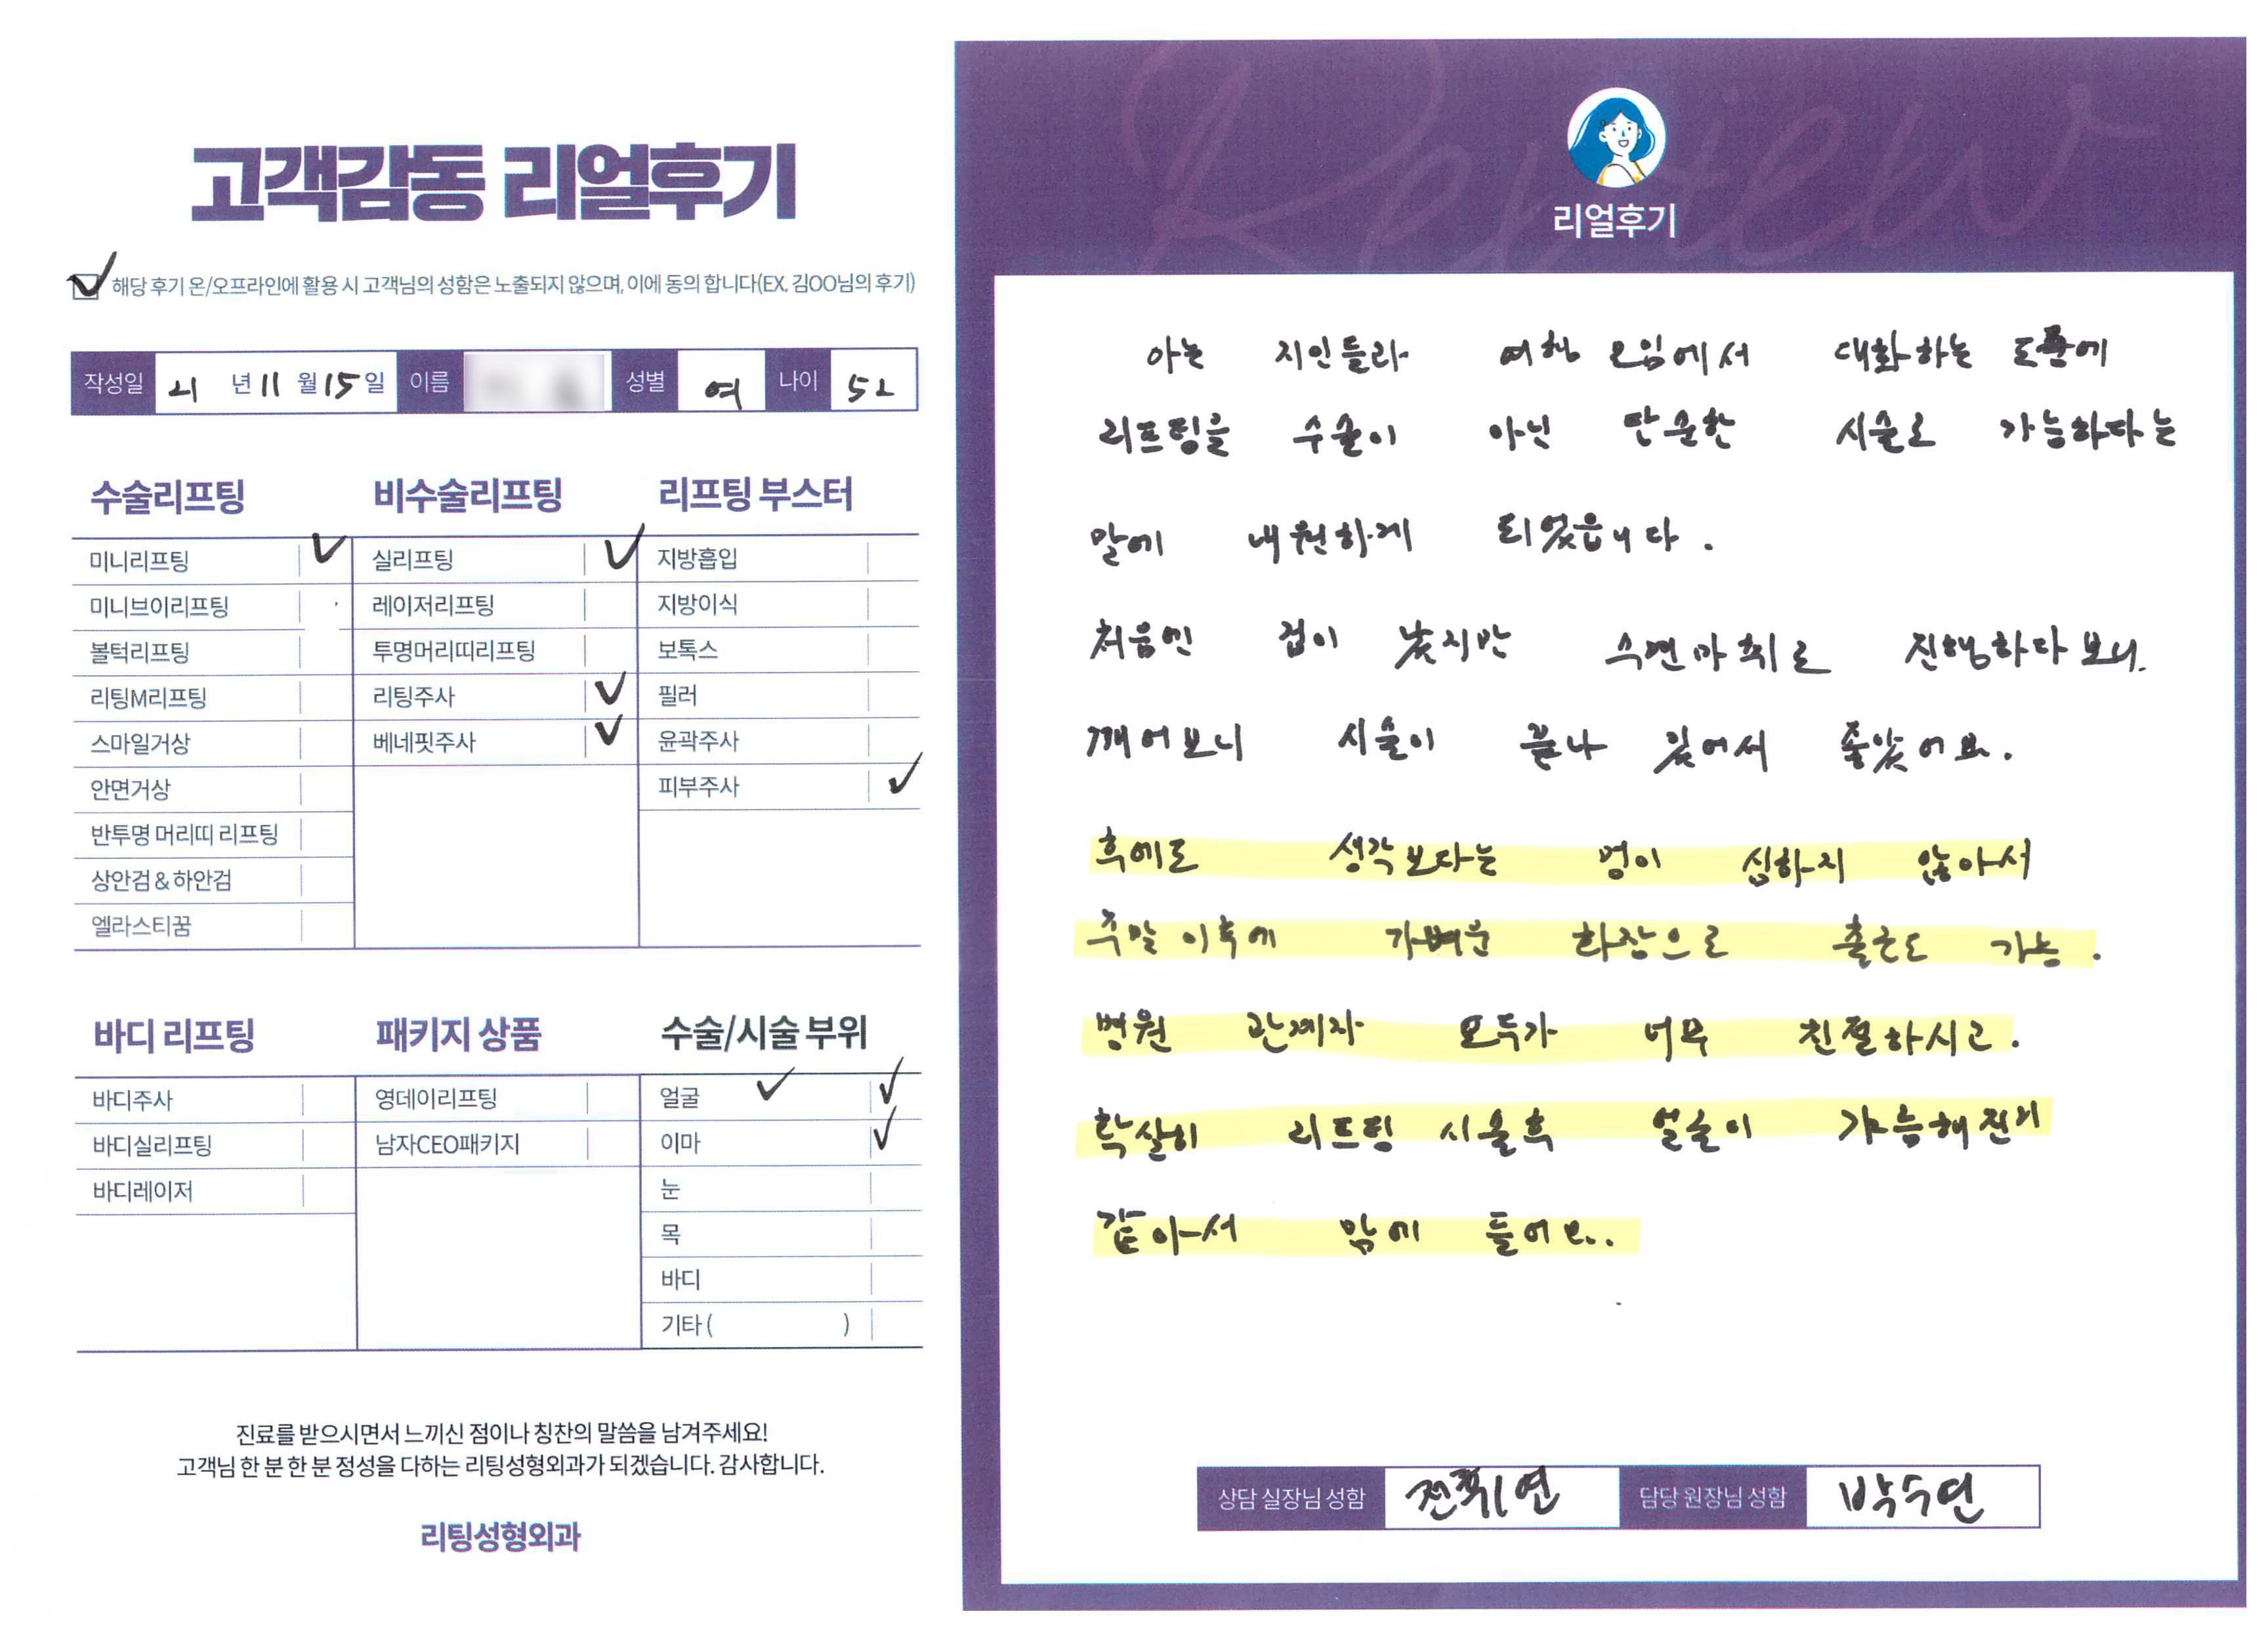 고객감동 리얼후기
해당 후기 온/오프라인에 활용 시 고객님의 성함은 노출되지 않으며, 이에 동의 합니다(EX. 김OO님의 후기)
작성일 21 년 11 월 15 일 이름 성별 여 나이 52
수술리프팅
미니리프팅
미니브이리프팅
볼턱리프팅
리팅M리프팅
스마일거상
안면거상
반투명 머리띠 리프팅
상안검 & 하안검
엘라스티꿈
비수술리프팅
실리프팅
레이저리프팅
투명머리띠리프팅
리팅주사
베네핏주사
리프팅 부스터
지방흡입
지방이식
보톡스
필러
윤곽주사
피부주사
바디 리프팅
바디주사
바디실리프팅
바디레이저
패키지 상품
영데이리프팅
남자CEO패키지
수술/시술 부위
얼굴
이마
눈
목
바디
기타 ( )
진료를 받으시면서 느끼신 점이나 칭찬의 말씀을 남겨주세요!
고객님 한 분 한 분 정성을 다하는 리팅성형외과가 되겠습니다. 감사합니다.
리팅성형외과
Review
리얼후기
아는 지인들과 여행 모임에서 대화하는 도중에
리프팅을 수술이 아닌 단순한 시술로 가능하다는
말에 내원하게 되었읍니다.
처음엔 겁이 났지만 수면마취로 진행하다보니
깨어보니 시술이 끝나 있어서 좋았어요.
후에도 생각보다는 멍이 심하지 않아서
주말이후에 가벼운 화장으로 출근도 가능.
병원 관계자 모두가 너무 친절하시고.
확실히 리프팅 시술후 얼굴이 갸름해진거
같아서 맘에 들어요..
상담 실장님 성함 전휘연 담당 원장님 성함 박수연